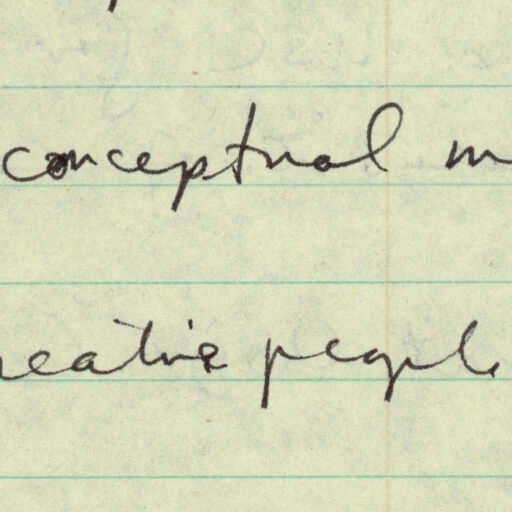 conceptual m
reative people